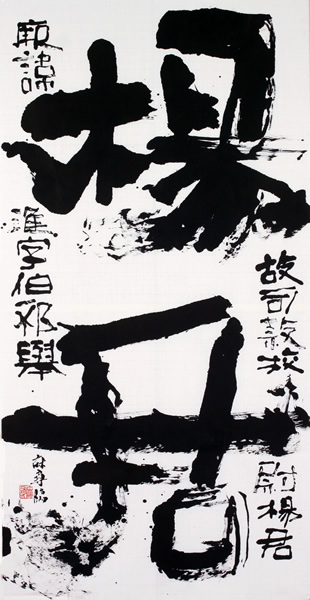 故司隸校尉楊君
楊
厥諱淮字伯邳舉